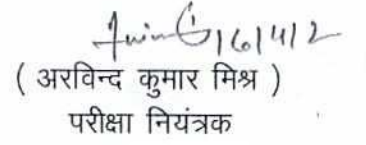 16/4/12
( अरविन्द कुमार मिश्र )
परीक्षा नियंत्रक